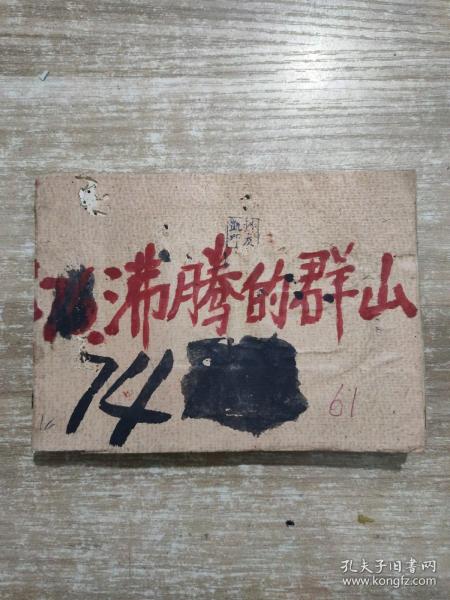 沸腾的群山
74
61
孔夫子旧书网
www.kongfz.com